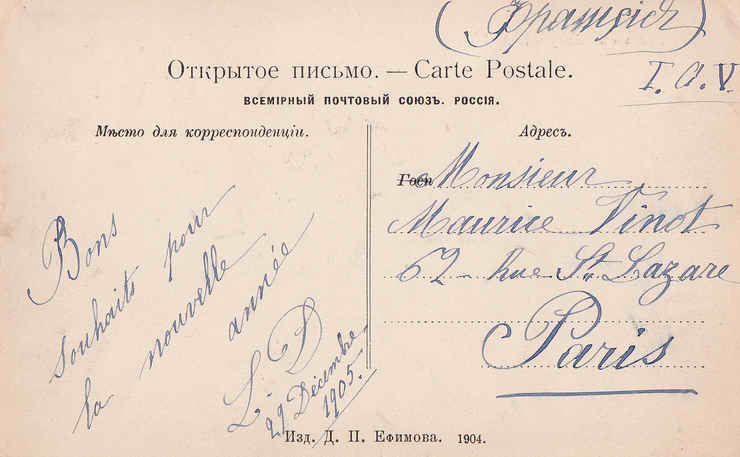 (Франція)
Открытое письмо. — Carte Postale.
T. C. V.
ВСЕМІРНЫЙ ПОЧТОВЫЙ СОЮЗЪ. РОССІЯ.
Мѣсто для корреспонденціи.
Bons
souhaits pour
la nouvelle
année
L. D
29 Décembre
1905.
Адресъ.
Monsieur
Maurice Vinot
62 Rue St. Lazare
Paris
Изд. Д. П. Ефимова. 1904.